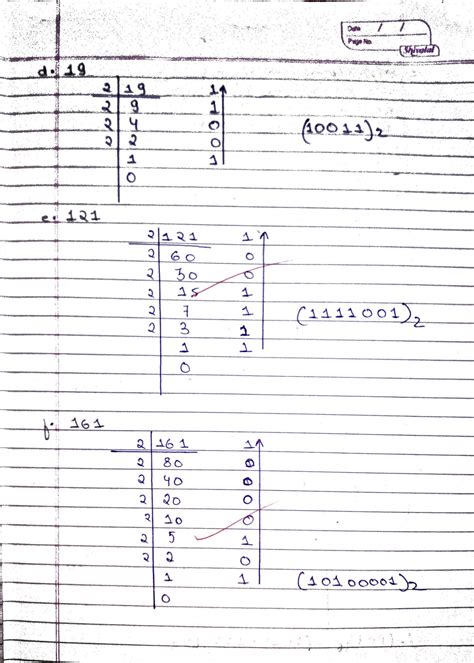 Date / /
Page No.
Shivalal
d. 19
2 19 1
2 9 1
2 4 0 (10011)2
2 2 0
1 1
0
e. 121
2 121 1
2 60 0
2 30 0
2 15 1
2 7 1 (1111001)2
2 3 1
1 1
0
f. 161
2 161 1
2 80 0
2 40 0
2 20 0
2 10 0
2 5 1
2 2 0
1 1 (10100001)2
0